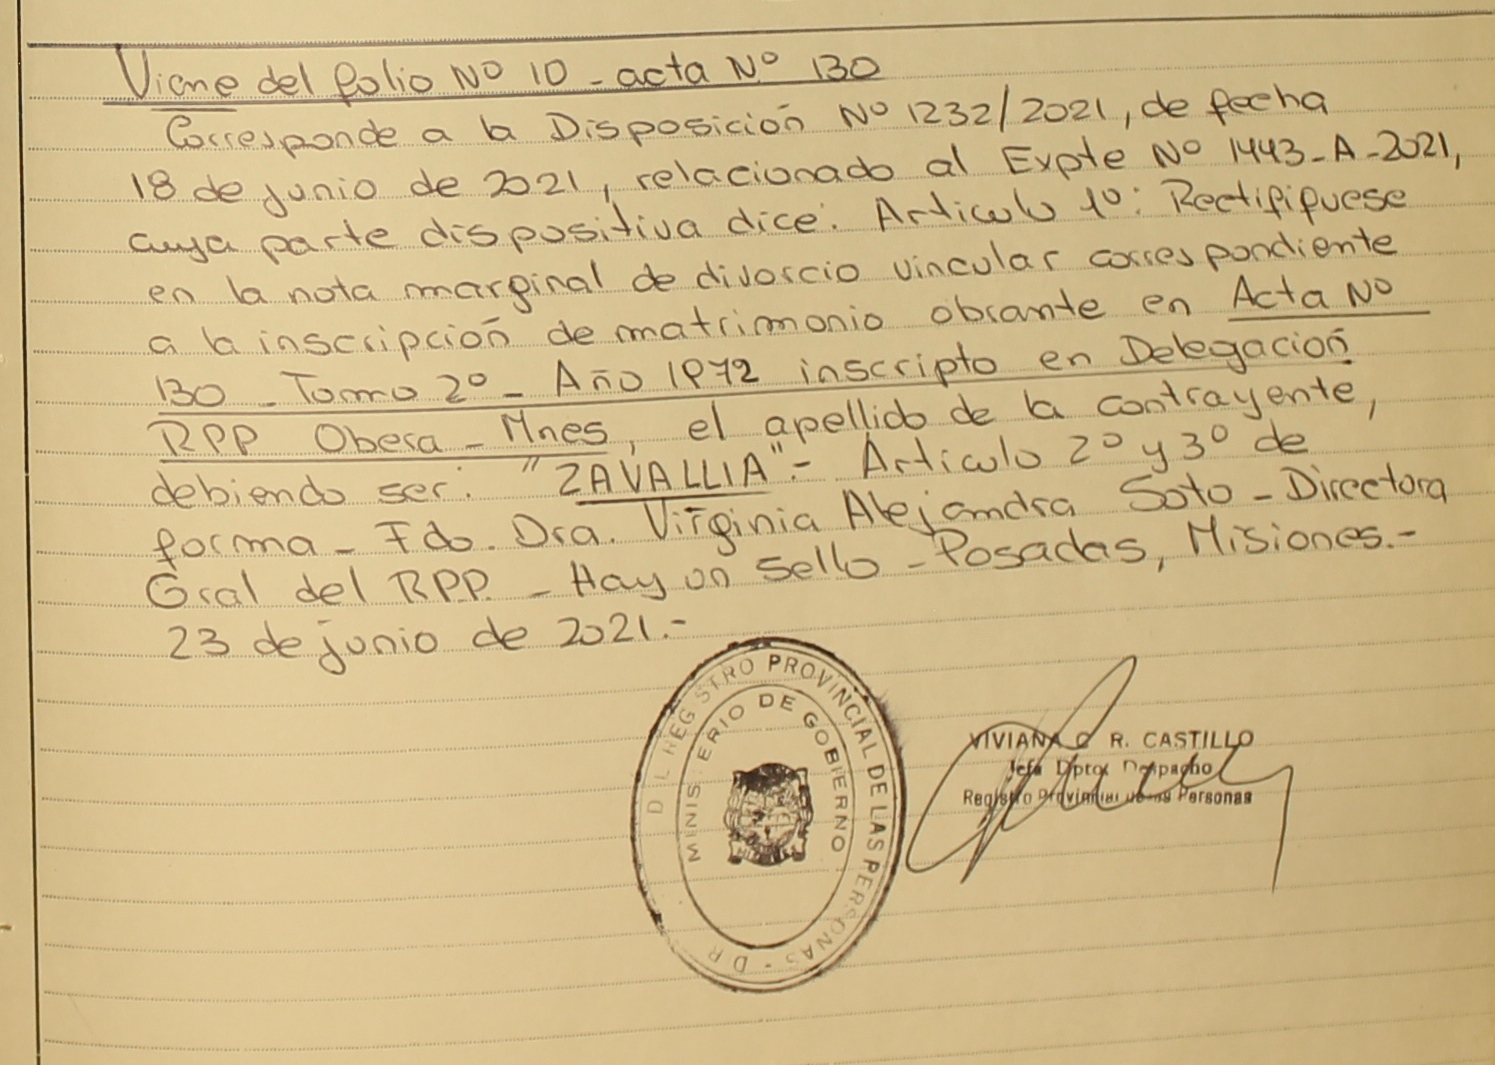 Viene del folio Nº 10 - acta Nº 130
Corresponde a la Disposición Nº 1232/2021, de fecha
18 de junio de 2021, relacionado al Expte Nº 1443-A-2021,
cuya parte dispositiva dice: Articulo 1º: Rectifiquese
en la nota marginal de divorcio vincular correspondiente
a la inscripción de matrimonio obrante en Acta Nº
130 - Tomo 2º - Año 1972 inscripto en Delegación
RPP Obera - Mnes, el apellido de la contrayente,
debiendo ser: "ZAVALLIA".- Articulo 2º y 3º de
forma - Fdo. Dra. Virginia Alejandra Soto - Directora
Gral del RPP. - Hay un sello - Posadas, Misiones.-
23 de junio de 2021.-
REGISTRO PROVINCIAL DE LAS PERSONAS -
MINISTERIO DE GOBIERNO
VIVIANA C. R. CASTILLO
Jefa Dpto. Despacho
Registro Provincial de las Personas